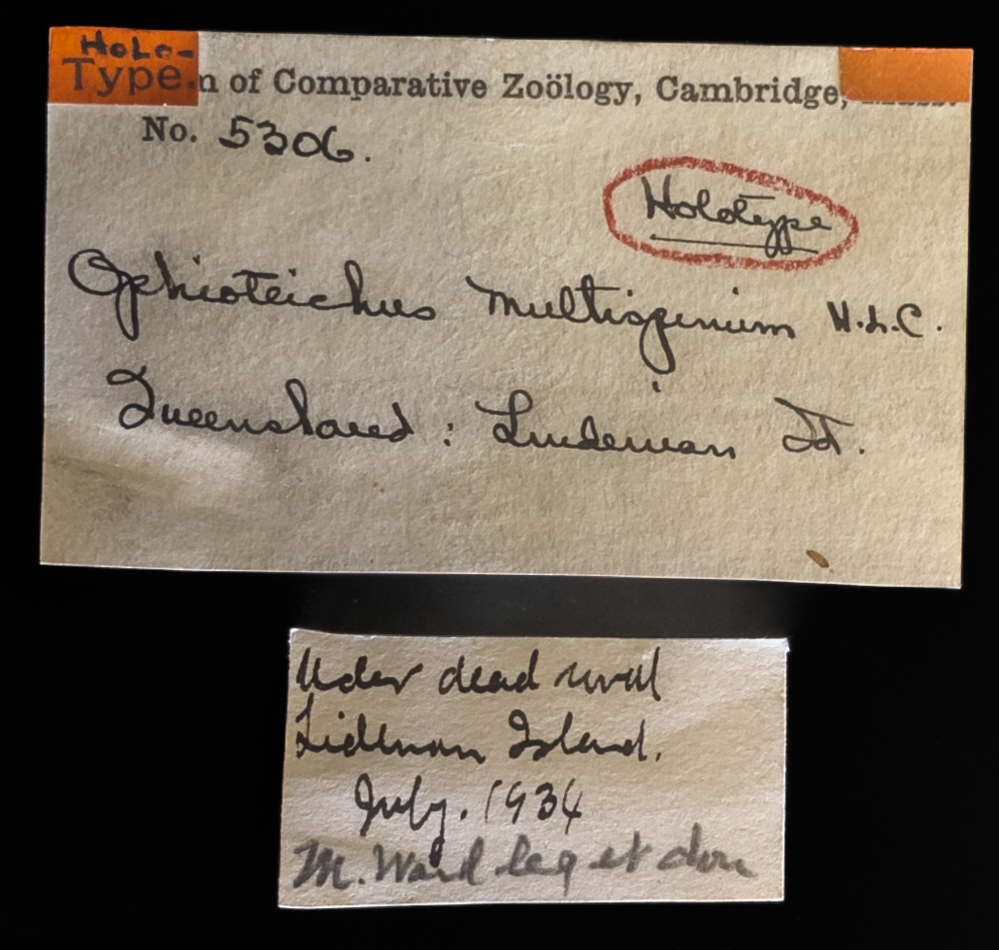 Holo-
Type.m of Comparative Zoölogy, Cambridge, Mass.
No. 5306.
Holotype
Ophioteichus multispinum H.L.C.
Queensland: Lindeman Id.
Under dead coral
Lindeman Island.
July. 1934
M. Ward leg et don